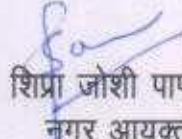 शिप्रा जोशी
नगर आयुक्त